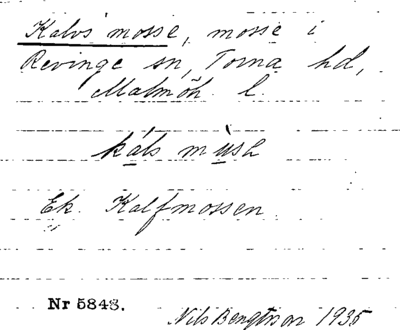 Kalvs mosse, mosse i
Revinge sn, Torna hd,
Malmöh. l
káls mùsɛ
Ek. Kalfmossen
Nr 5843.
Nils Bengtsson 1935